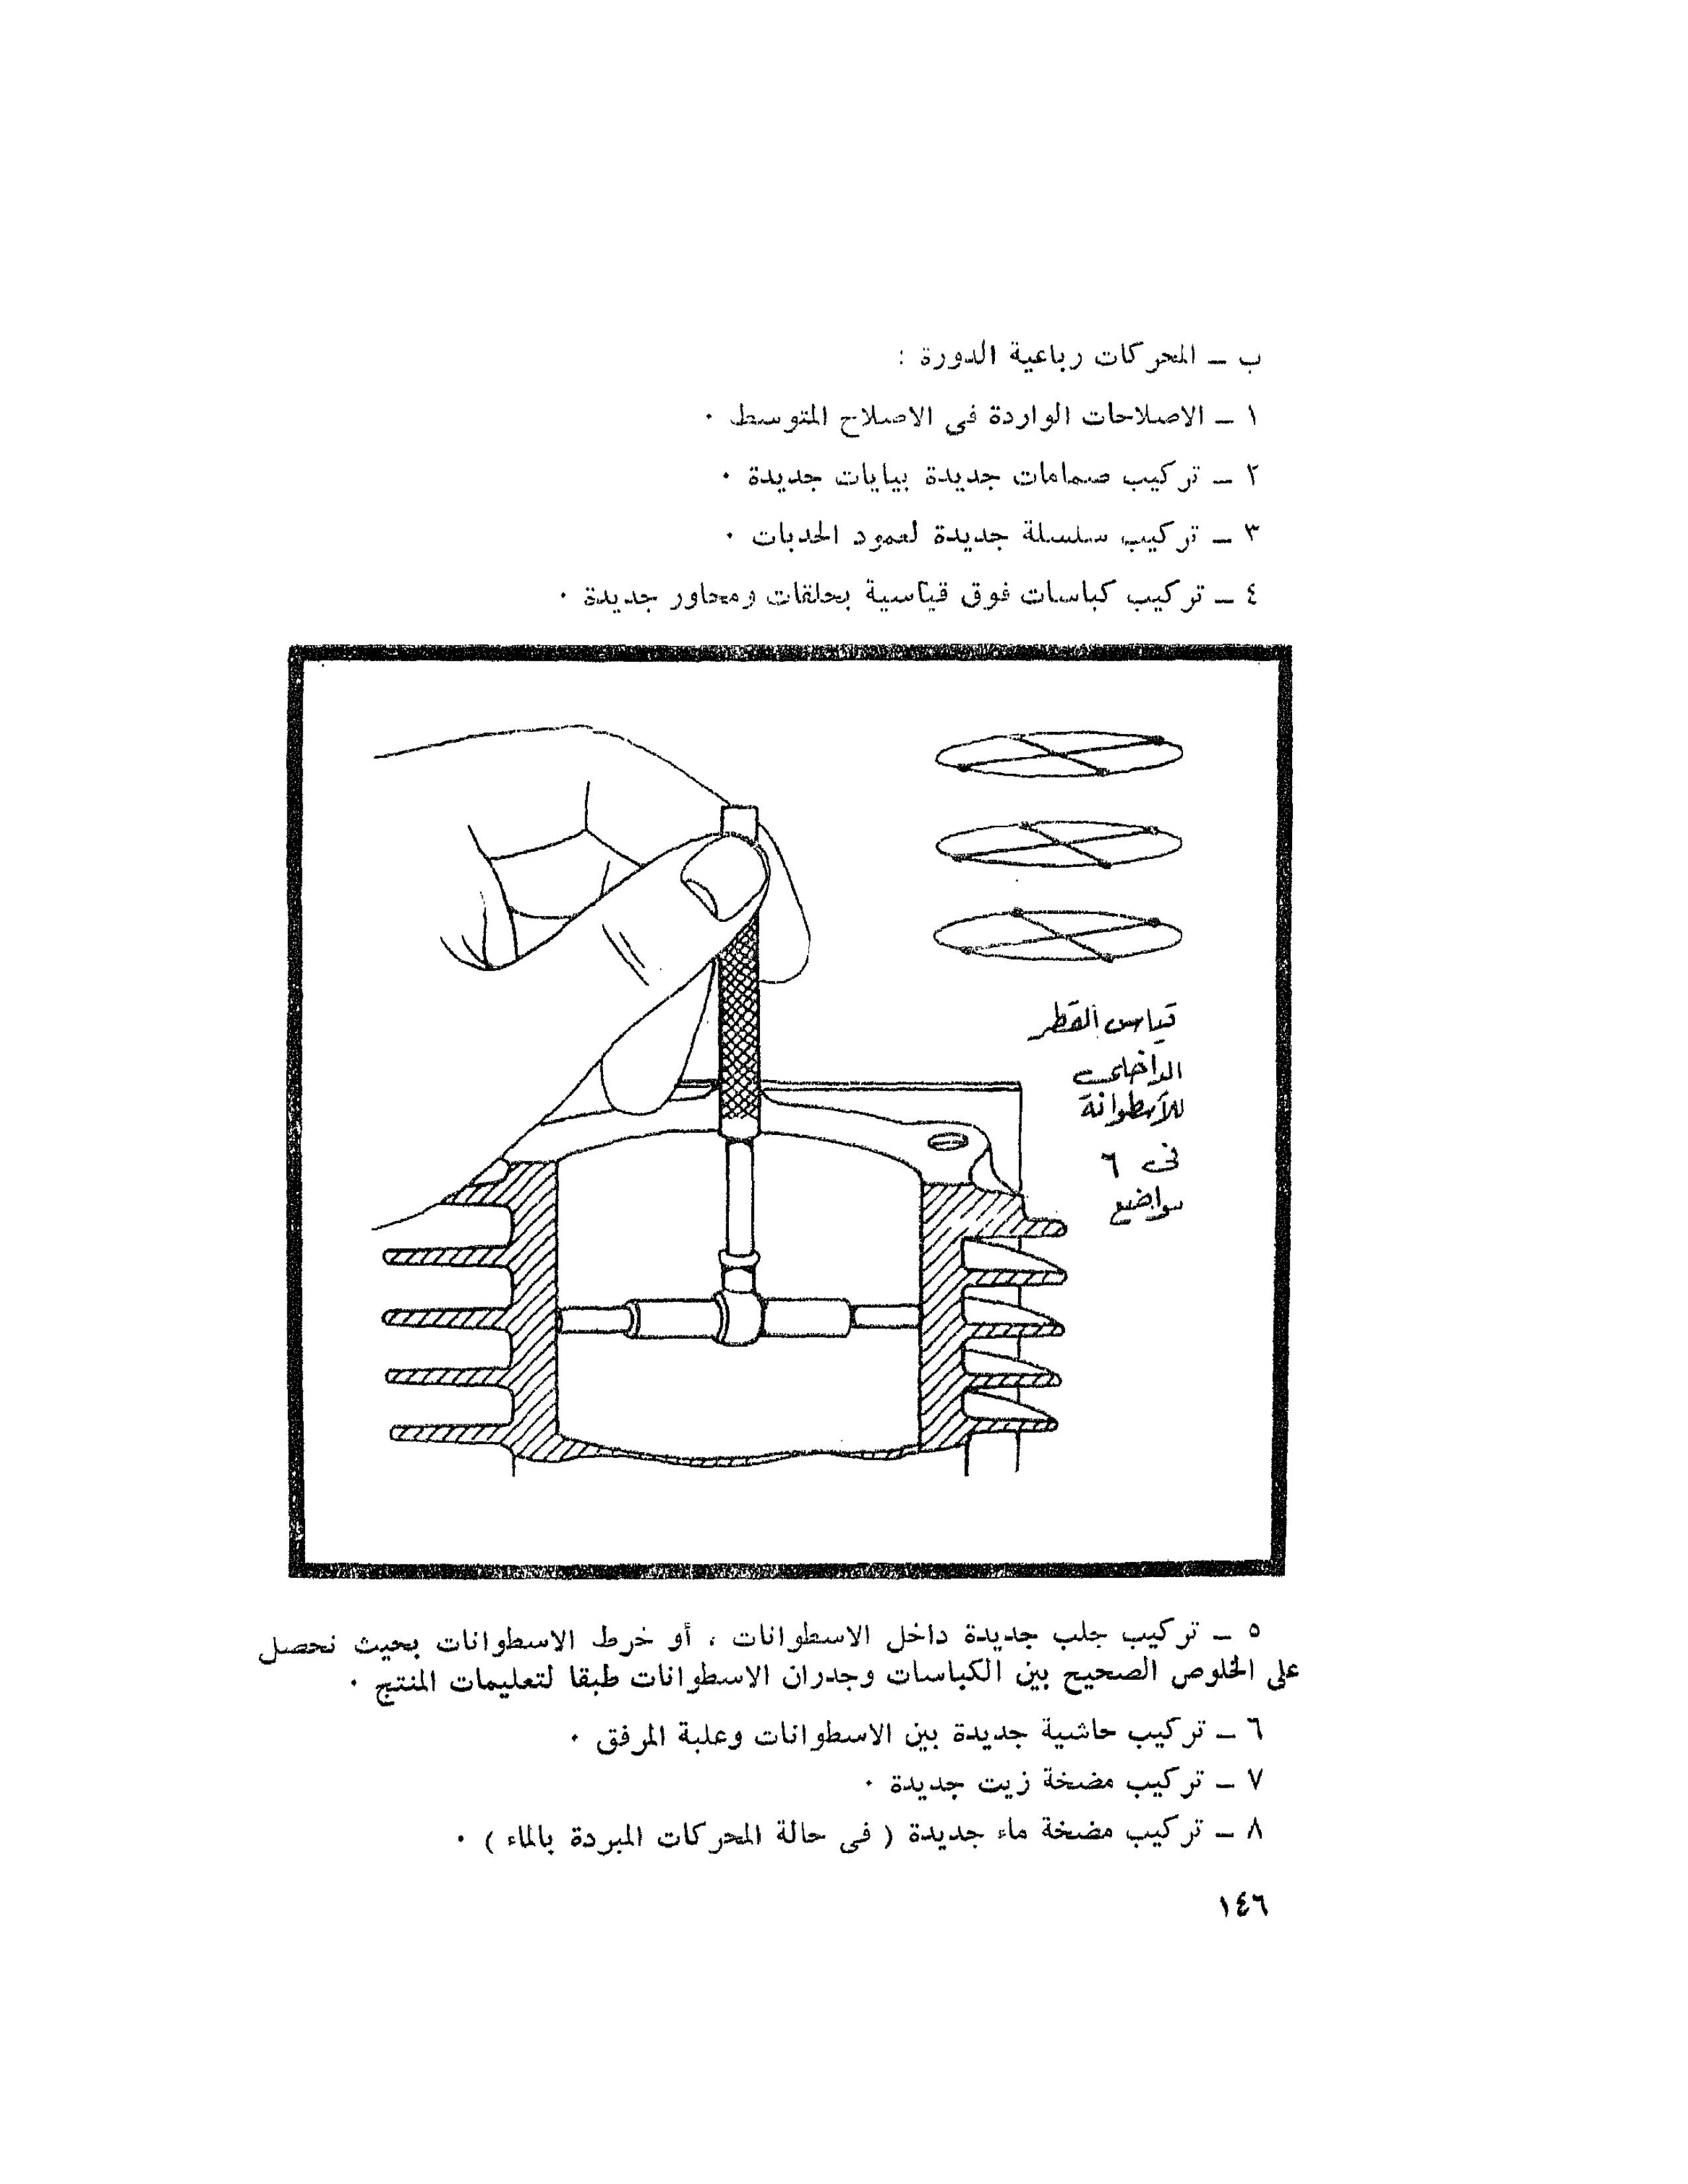 ب ــ المحركات رباعية الدورة :
١ ــ الاصلاحات الواردة فى الاصلاح المتوسط ٠
٢ ــ تركيب صمامات جديدة بيايات جديدة ٠
٣ ــ تركيب سلسلة جديدة لعمود الحدبات ٠
٤ ــ تركيب كباسات فوق قياسية بحلقات ومحاور جديدة ٠
قياس القطر
الداخلى
للأسطوانة
فى ٦
مواضيع
٥ ــ تركيب جلب جديدة داخل الاسطوانات ، أو خرط الاسطوانات بحيث نحصل
على الخلوص الصحيح بين الكباسات وجدران الاسطوانات طبقا لتعليمات المنتج ٠
٦ ــ تركيب حاشية جديدة بين الاسطوانات وعلبة المرفق ٠
٧ ــ تركيب مضخة زيت جديدة ٠
٨ ــ تركيب مضخة ماء جديدة ( فى حالة المحركات المبردة بالماء ) ٠
١٤٦